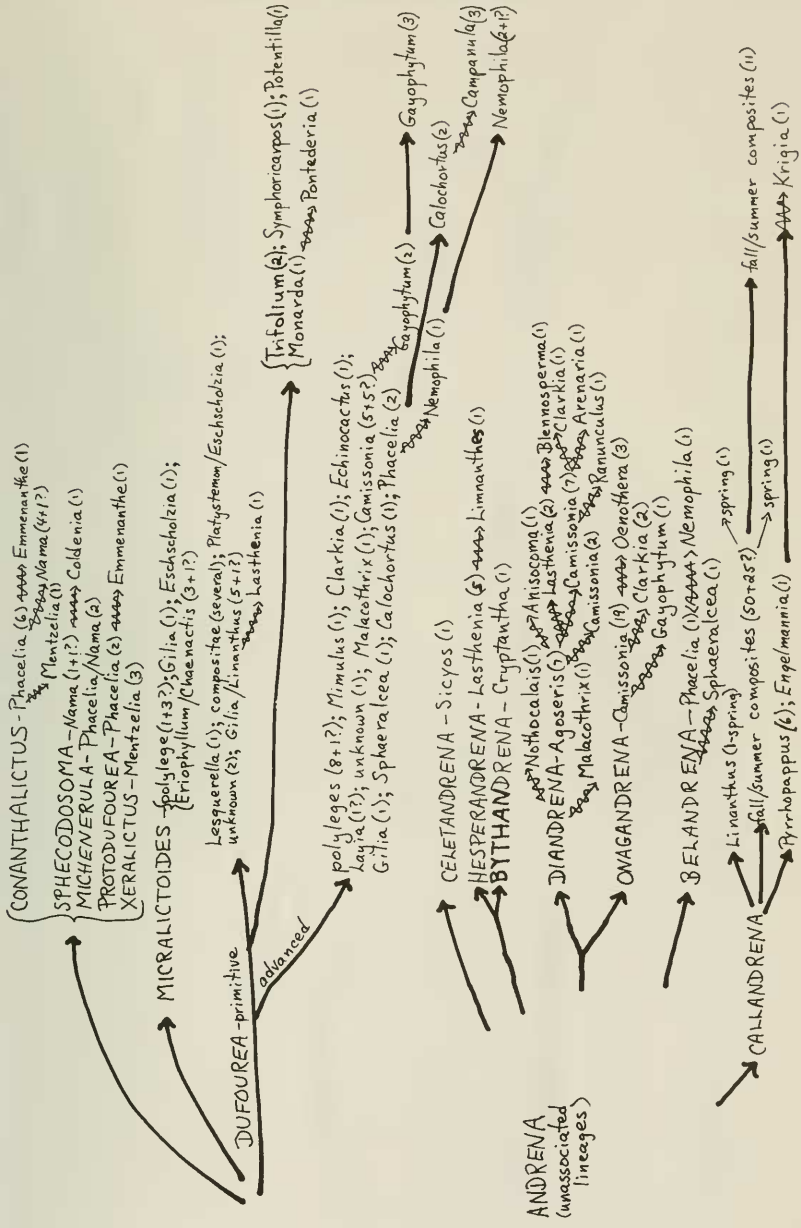 CONANTHALICTUS-Phacelia (6) Emmenanthe (1)
Nama (4+1?)
Mentzelia (1)
SPHECODOSOMA-Nama (1+1?) Coldenia (1)
MICHENERULA-Phacelia/Nama (2)
PROTODUFOUREA-Phacelia (2) Emmenanthe (1)
XERALICTUS-Mentzelia (3)
MICRALICTOIDES polylege (1+3?); Gilia (1); Eschscholzia (1);
Eriophyllum/Chaenactis (3+1?)
DUFOUREA-primitive
Lesquerella (1); compositae (several); Platystemon/Eschscholzia (1);
unknown (2); Gilia/Linanthus (5+1?)
Lasthenia (1)
Trifolium (2); Symphoricarpos (1); Potentilla (1)
Monarda (1) Pontederia (1)
advanced
polyleges (8+1?); Mimulus (1); Clarkia (1); Echinocactus (1);
Layia (1?); unknown (1); Malacothrix (1); Camissonia (5+5?)
Gilia (1); Sphaeralcea (1); Calochortus (1); Phacelia (2)
Gayophytum (2) Gayophytum (3)
Nemophila (1) Calochortus (2)
Campanula (3)
Nemophila (2+1?)
ANDRENA
(unassociated
lineages)
CELETANDRENA-Sicyos (1)
HESPERANDRENA-Lasthenia (5) Limnanthes (1)
BYTHANDRENA-Cryptantha (1)
Nothocalais (1) Anisocoma (1)
DIANDRENA-Agoseris (7) Lasthenia (2) Blennosperma (1)
Camissonia (7) Clarkia (1)
Malacothrix (1) Camissonia (2) Arenaria (1)
Ranunculus (1)
ONAGANDRENA-Camissonia (19) Oenothera (3)
Clarkia (2)
Gayophytum (1)
BELANDRENA-Phacelia (1) Nemophila (1)
Sphaeralcea (1)
CALLANDRENA
Linanthus (1-spring) spring (1)
fall/summer composites (50+25?) fall/summer composites (11)
spring (1)
Pyrrhopappus (6); Engelmannia (1) Krigia (1)